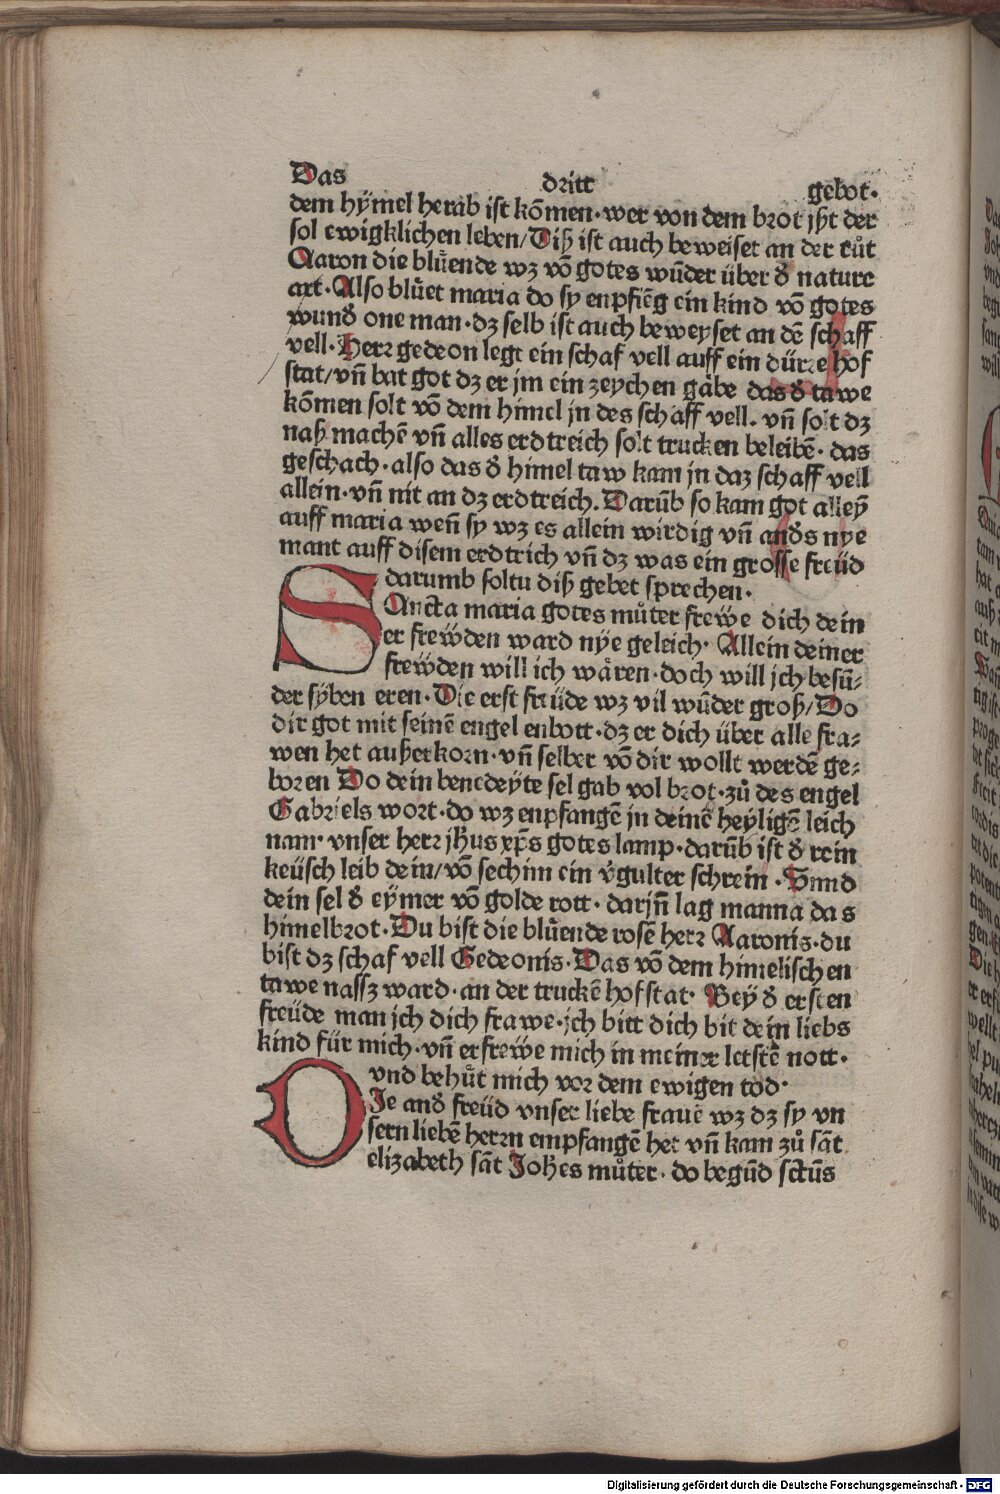 Das dritt gebot.
dem hÿmel herab ist kōmen· wer von dem brot jßt der
sol ewigklichen leben/ Diß ist auch beweiset an der růt
Aaron die blůende wz vō gotes wūder über đ nature
art· Also blůet maria do sy enpfiēg ein kind vō gotes
wunđ one man· dz selb ist auch beweyset an dē schaff
vell· Herr gedeon legt ein schaf vell auff ein dürre hof
stat/ vn̄ bat got dz er jm ein zeychen gåbe das đ tawe
kōmen solt vō dem himel jn des schaff vell. vn̄ solt dz
naß machē vn̄ alles erdtreich solt trucken beleibē· das
geschach· also das đ himel taw kam jn daz schaff vell
allein· vn̄ nit an dz erdtreich. Darūb so kam got alleÿ
auff maria wen̄ sy wz es allein wirdig vn̄ anđs nye
mant auff disem erdtrich vn̄ dz was ein grosse freüd
darumb soltu diß gebet sprechen·
SAncta maria gotes můter frewe dich dein
er frewden ward nÿe geleich· Allein deiner
frewden will ich wåren· doch will jch besū-
der sÿben eren· Die erst freüde wz vil wūder groß/ Do
dir got mit seinē engel enbott· dz er dich über alle fra-
wen het außerkorn· vn̄ selber vō dir wollt werdē ge-
boren Do dein benedeÿte sel gab vol brot· zů des engel
Gabriels wort· do wz enpfangē jn deinē heÿligē leich
nam· vnser herr jħus xp̄s gotes lamp· darūb ist đ rein
keüsch leib dein/ vō sechim ein v̊gulter schrein· Unnd
dein sel đ eÿmer vō golde rott· darjn̄ lag manna das
himelbrot· Du bist die blůende rose herr Aaronis· du
bist dz schaf vell Gedeonis· Das vō dem himelischen
tawe nassz ward· an der truckē hofstat· Beÿ đ ersten
freüde man jch dich frawe· jch bitt dich bit dein liebs
kind für mich· vn̄ erfrewe mich in meiner letstē nott·
vnd behůt mich vor dem ewigen tod·
DIe anđ freüd vnser liebe frauē wz dz sy vn
sern liebē herrn empfangē het vn̄ kam zů sāt
elizabeth sāt Joħes můter· do begūd sctūs
Digitalisierung gefördert durch die Deutsche Forschungsgemeinschaft - DFG